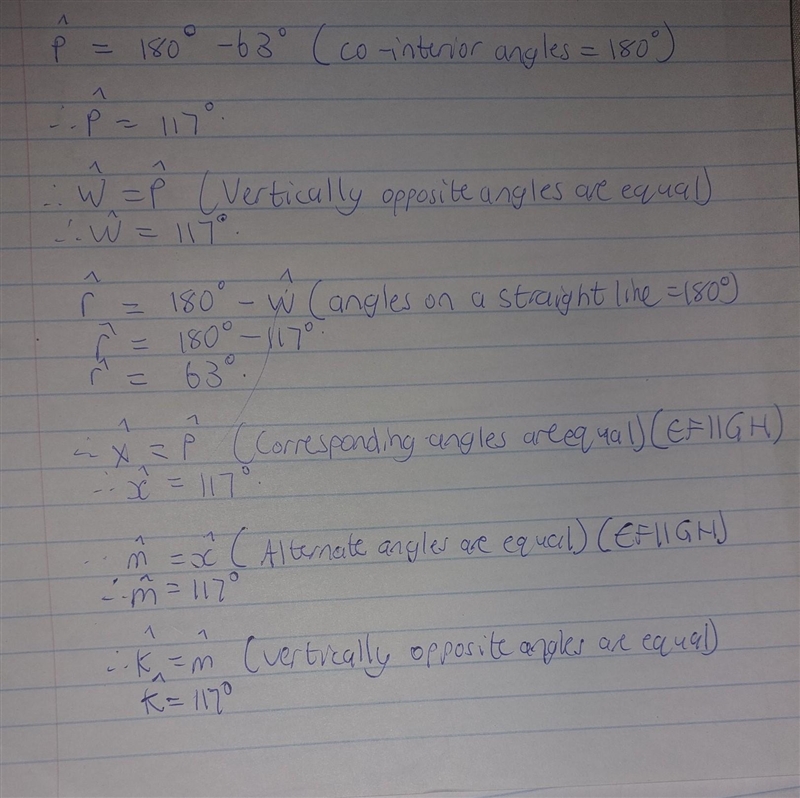 p̂ = 180° - 63° (co-interior angles = 180°)
∴ p̂ = 117°.
∴ ŵ = p̂ (Vertically opposite angles are equal)
∴ ŵ = 117°.
r̂ = 180° - ŵ (angles on a straight line = 180°)
r̂ = 180° - 117°.
r̂ = 63°.
∴ x̂ = p̂ (Corresponding angles are equal) (EF||GH)
∴ x̂ = 117°.
∴ m̂ = x̂ (Alternate angles are equal) (EF||GH)
∴ m̂ = 117°
∴ k̂ = m̂ (vertically opposite angles are equal)
k̂ = 117°